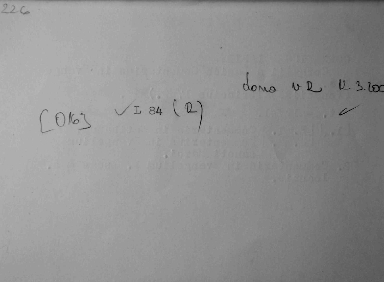 226
dono V R N. 3.200
[016] ✓ I 84 (R)